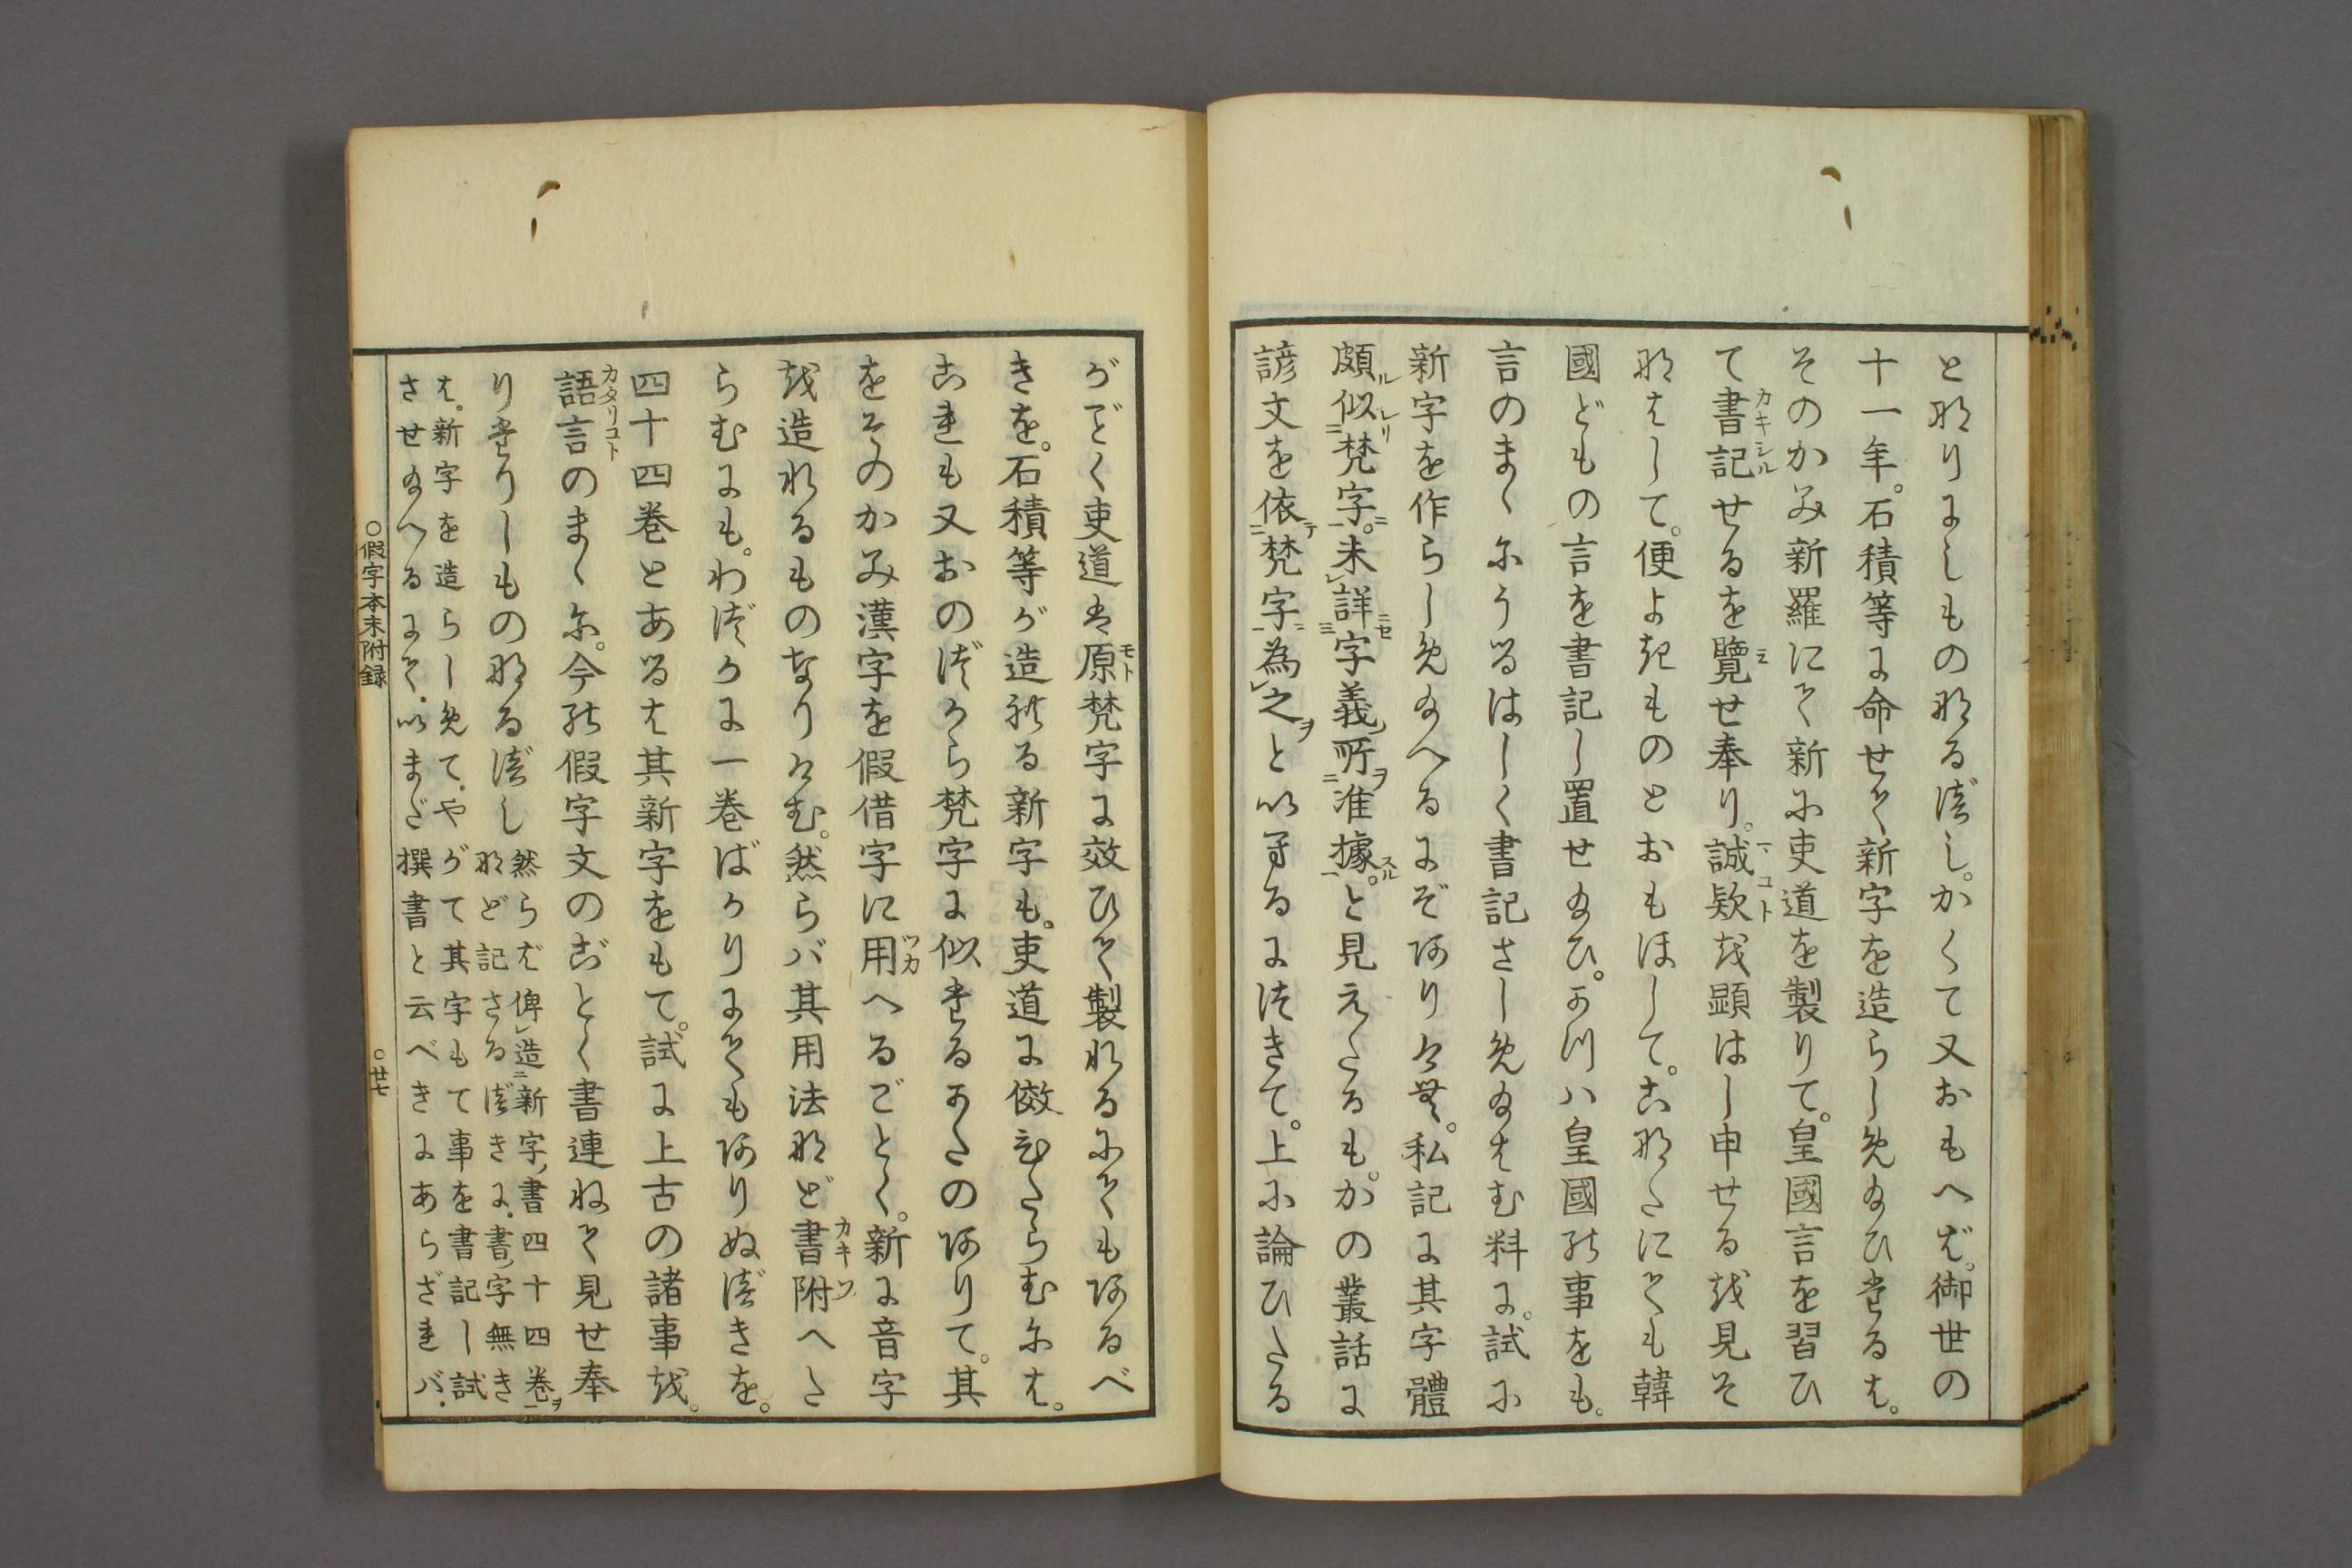 となりにしものなるべし。かくて又おもへば。御世の
十一年。石積等に命せて新字を造らしめ給ひたるは。
そのかみ新羅にて新に吏道を製りて。皇國言を習ひ
て書記せるを覽せ奉り。誠款を顕はし申せるを見そ
なはして。便よきものとおもほして。こなたにても韓
國どもの言を書記し置せ給ひ。かつハ皇國の事をも。
言のまゝにうるはしく書記さしめ給はむ料に。試に
新字を作らしめ給へるにぞありけむ。私記に其字體
頗似梵字。未詳字義所准據。と見えたるも。かの叢話に
諺文を依梵字為之といへるにつきて。上に論ひたる
がごく吏道は原梵字に效ひて製れるにてもあるべ
きを。石積等が造れる新字も。吏道に傚ひたらむには。
これも又おのづから梵字に似たるかたのありて。其
をそのかみ漢字を假借字に用へるごとく。新に音字
を造れるものなりけむ。然らバ其用法など書附へた
らむにも。わづかに一卷ばかりにてもありぬべきを。
四十四卷とあるは其新字をもて。試に上古の諸事を。
語言のまゝに。今の假字文のごとく書連ねて見せ奉
りたりしものなるべし然らば俾造新字書四十四卷
など記さるべきに。書字無き
は。新字を造らしめて。やがて其字もて事を書記し試
させ給へるにて。いまだ撰書と云べきにあらざれバ。
○假字本末附録
○廿七
カキシル
ミ
マコト
モト
ツカ
カキツ
カタリコト